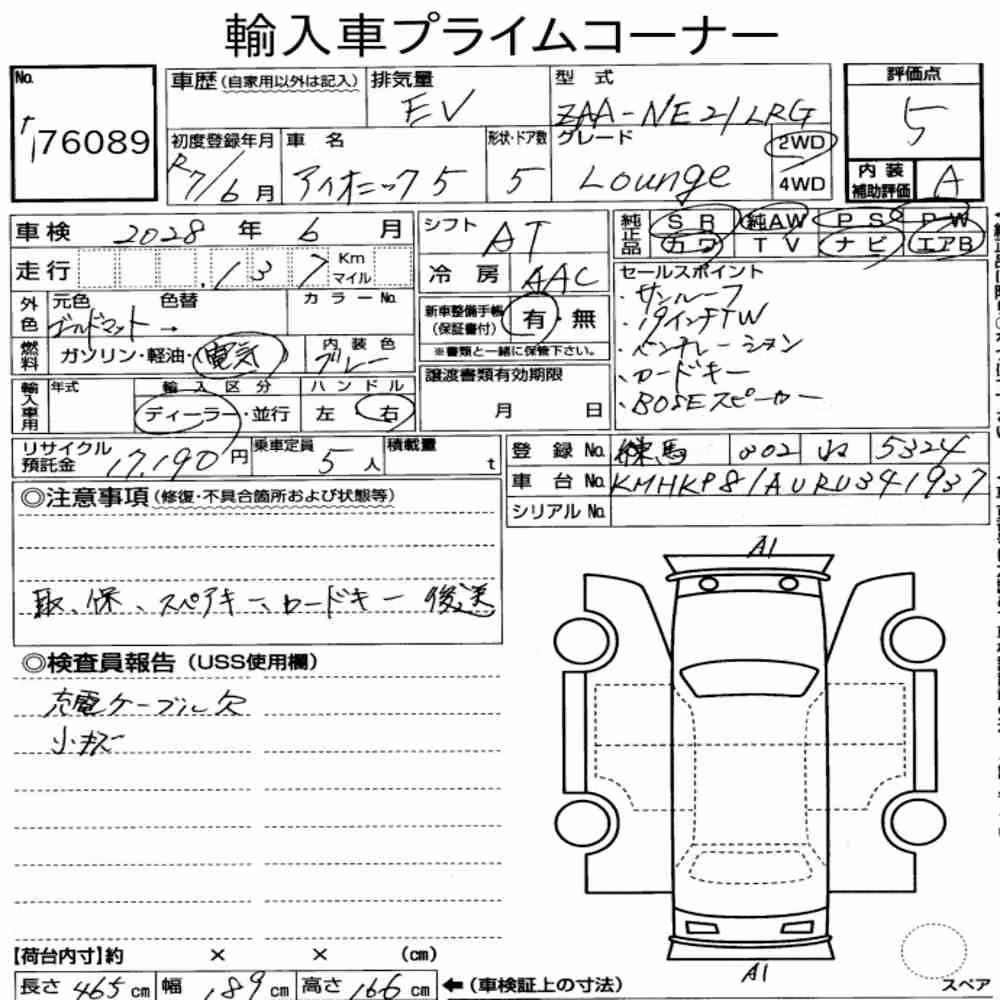 輸入車プライムコーナー
No. 76089
車歴 (自家用以外は記入) 排気量 EV 型式 ZAA-NE21LRG 評価点 5
初度登録年月 R7/6月 車名 アイオニック5 形状・ドア数 5 グレード Lounge 2WD 4WD 内装補助評価 A
車検 2028年 6月 シフト AT 純正品 SR 純AW PS PW
走行 .137 Km マイル 冷房 AAC カワ TV ナビ エアB
外色 元色 ゴールドマット 色替 → カラーNo.
新車整備手帳(保証書付) 有・無
※書類と一緒に保管下さい。
セールスポイント
・サンルーフ
・19インチTW
・ベンチレーション
・カードキー
・BOSEスピーカー
燃料 ガソリン・軽油・電気 内装色 グレー
譲渡書類有効期限 月 日
輸入車用 年式 輸入区分 ディーラー・並行 ハンドル 左 右
リサイクル預託金 17,190円 乗車定員 5人 積載量 t
登録No. 練馬 302 ね 5324
車台No. KMHKP81AURU341937
シリアルNo.
◎注意事項(修復・不具合箇所および状態等)
取、保、スペアキー、カードキー 後送
◎検査員報告(USS使用欄)
充電ケーブル欠
小キズ
A1
A1
【荷台内寸】約 × × (cm)
長さ 465cm 幅 189cm 高さ 166cm ←(車検証上の寸法)
スペア